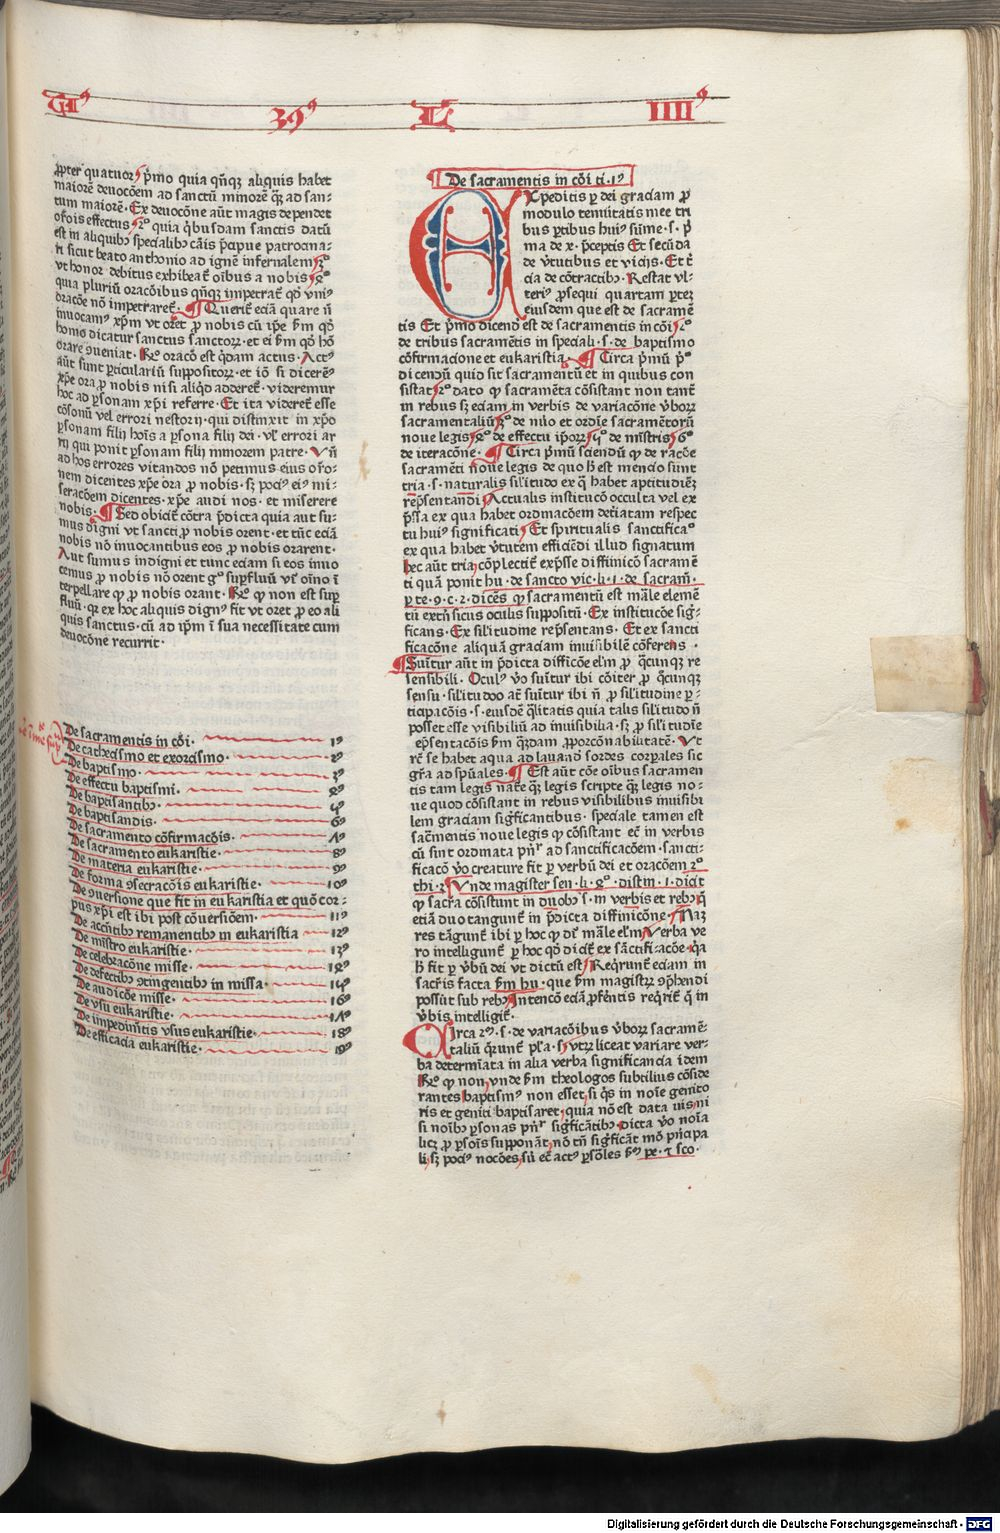 Tiꝰ 39ꝰ L IIIIꝰ
ꝓpter quatuor pͥmo quia qn̄qꝫ aliquis habet
maiorē deuocōem ad sanctū minorē qꝫ ad san-
tum maiorē· Ex deuocōne aūt magis dependet
oꝛōis effectus 2º quia qͥbusdam sanctis datū
est in aliquibꝫ specialibꝫ cāis p̄cipue patrocina-
ri sicut beato anthonio ad ignē infernalem 3º
vt honor debitus exhibeat᷑ oībus a nobis 4º
quia pluriū oracōibus qn̄qꝫ impetrat᷑ qd̄ vniꝰ
oracōe nō impetraret᷑· ¶ Querit᷑ eciā quare n̄
inuocamꝰ xp̄m vt oret ꝓ nobis cū ip̄e ẜm qd̄
homo dicatur sanctus sanctoꝝ· et ei ẜm qd̄ hō
orare ꝯueniat· Rº oracō est qͥdam actus· Actꝰ
aūt sunt ꝑticulariū suppositoꝝ· et iō si dicerē
xp̄e ora ꝓ nobis nisi aliqͥd adderet᷑· videremur
hoc ad ꝑsonam xp̄i referre· Et ita videret᷑ esse
cōsonū vel errori nestorij· qui distinxit in xp̄o
ꝑsonam filij hoīs a ꝑsona filij dei· vl̓ errori ar
rij qui ponit ꝑsonam filij minorem patre· Vn̄
ad hos errores vitandos nō petimus eius oꝛō-
nem dicentes xp̄e ora ꝓ nobis· sꝫ pociꝰ eiꝰ mi-
seracōem dicentes· xp̄e audi nos· et miserere
nobis· ¶ Sed obicit᷑ cōtra p̄dicta quia aut su-
mus digni vt sancti ꝓ nobis orent· et tūc eciā
nobis nō inuocantibus eos ꝓ nobis orarent·
Aut sumus indigni et tunc eciam si eos inuo
cemus ꝓ nobis nō orent gͦ suꝑfluū vl̓ oīno ī
terpellare qͥ ꝓ nobis orant· Rº qͥ non est suꝑ
fluū· qꝛ ex hoc aliquis dignꝰ fit vt oret ꝓ eo ali
quis sanctus· cū ad ip̄m ī sua necessitate cum
deuocōne recurrit·
De sacramentis in cōi· 1ꝰ
De cathecismo et exorcismo· 2ꝰ
De baptismo· 3ꝰ
De effectu baptismi· 4ꝰ
De baptisantibꝫ· 5ꝰ
De baptisandis· 6ꝰ
De sacramento cōfirmacōis· 7ꝰ
De sacramento eukaristie· 8ꝰ
De materia eukaristie· 9ꝰ
De forma ꝯsecracōis eukaristie· 10ꝰ
De ꝯuersione que fit in eukaristia et quō cor-
pus xp̄i est ibi post cōuersiōem· 11ꝰ
De accn̄tibꝫ remanentibꝫ in eukaristia 12ꝰ
De mīstro eukaristie· 13ꝰ
De celebracōne misse· 14ꝰ
De defectibꝫ ꝯtingentibꝫ in missa· 15ꝰ
De audicōe misse· 16ꝰ
De vsu eukaristie· 17ꝰ
De impedimn̄tis vsus eukaristie· 18ꝰ
De efficacia eukaristie· 19ꝰ
De sacramentis in cōi ti·1ꝰ
EXpeditis ꝑ dei graciam ꝓ
modulo tenuitatis mee tri
bus ꝑtibus huiꝰ sūme·s· pͥ
ma de x· p̄ceptis Et secūda
de v̓tutibus et vicijs· Et t̓
cia de cōtractibꝫ· Restat vl-
teriꝰ ꝓsequi quartam ꝑtez
eiusdem que est de sacramē
tis Et pͥmo dicend̄ est de sacramentis in cōi 2º
de tribus sacramētis in speciali·s· de baptismo
cōfirmacione et eukaristia· ¶ Circa pͥmū pͥº
dicendū quid sit sacramentū et in quibus con
sistat 2º dato qͥ sacramēta cōsistant non tantū
in rebus sꝫ eciam in verbis de variacōne v̓boꝝ
sacramentaliū 3º de nūo et ordīe sacramētorū
noue legis 4º de effectu ip̄oꝝ 5º de mīstris 6º
de iteracōne· ¶ Circa pͥmū sciendū qͥ de racōe
sacramēti noue legis de quo h̄ est mencio sunt
tria·s· naturalis sil̓itudo ex qͣ habet aptitudinē
rep̄sentandi Actualis institucō occulta vel ex
p̄ssa ex qua habet ordinacōem det̓iatam respec
tu huiꝰ significati Et spiritualis sanctificaº
ex qua habet v̓tutem efficiēdi illud signatum
hec aūt tria cōplectit᷑ exp̄sse diffinicō sacramē
ti quā ponit hu· de sancto vic·li·1· de sacram̄·
ꝑte·9·c·2· dicēs qͥ sacramentū est māle elemē
tū ext̓n̄sicus oculis suppositū· Ex institucōe sig-
ficans· Ex sil̓itudine rep̄sentans· Et ex sancti
ficacōne aliquā graciam inuisibilē cōferens·
¶ Suīt᷑ur aūt in p̄dicta difficōe el̓m ꝓ qͥcunqꝫ re
sensibili· Oculꝰ v̓o suīt᷑ur ibi cōiter ꝓ qͥcunqꝫ
sensu· sil̓itudo aūt suīt᷑ur ibi n̄ ꝓ sil̓itudine ꝑ-
ticipacōis·s· eiusdē qͣlitatis quia talis sil̓itudo n̄
posset esse visibiliū ad inuisibilia· sꝫ ꝓ sil̓itudīe
rep̄sentacōis ẜm qͣzdam ꝓporcōnabilitatē· Vt
sꝫ se habet aqua ad lauand̄ sordes corꝑales sic
gr̄a ad sp̄uales· ¶ Est aūt cōe oībus sacramen
tis tam legis nat̓e qꝫ legis scripte qꝫ legis no-
ue quod cōsistant in rebus visibilibus inuisibi
lem graciam sigficantibus· speciale tamen est
sac̄mentis noue legis qͥ cōsistant ec̄ in verbis
cū sint ordinata pͥnͬ ad sanctificacōem· sancti-
ficacō v̓o creature fit ꝑ verbū dei et oracōem 2º
thi·2 Vnde magister sen·li·4º·distin·1·dicit
qͥ sacra cōsistunt in duobꝫ·s· in verbis et rebꝫ qͥ
etiā duo tangunt᷑ in p̄dicta diffinicōne· Naz
res tāgunt᷑ ibi ꝑ hoc qͥ dꝛ̄ māle el̓m Verba ve
ro intelligunt᷑ ꝑ hoc qd̄ dicit᷑ ex sāctificacōe qͣ
h̄ fit ꝑ v̓bū dei vt dictū est Reqͥrunt᷑ eciam in
sacr̄is facta ẜm hu· que ẜm magistꝝ ꝯp̄hendi
possūt sub rebꝫ Intencō eciā ꝓferentis reqͥrit᷑ qͥ in
v̓bis intelligit᷑·
CIrca 2ꝫ·s· de variacōibus v̓boꝝ sacramē-
taliū qͣrunt᷑ pl̓a·s· vtꝝ liceat variare ver-
ba determiata in alia verba significancia idem
Rº qͥ non vnde ẜm theologos subtilius cōside
rantes baptismꝰ non esset si qͥs in noīe genito
ris et geniti baptisaret quia nō est data uis ni
si noībꝫ ꝑsonas pͥnͬ sigficātibꝫ dicta v̓o noīa
licꝫ ꝓ ꝑsoīs supponāt nō tn̄ sigficāt mō pͥncipa
li sꝫ pociꝰ nocōes sū ec̄ actꝰ ꝑsōles ẜm pe· 7 sco·
Digitalisierung gefördert durch die Deutsche Forschungsgemeinschaft - DFG